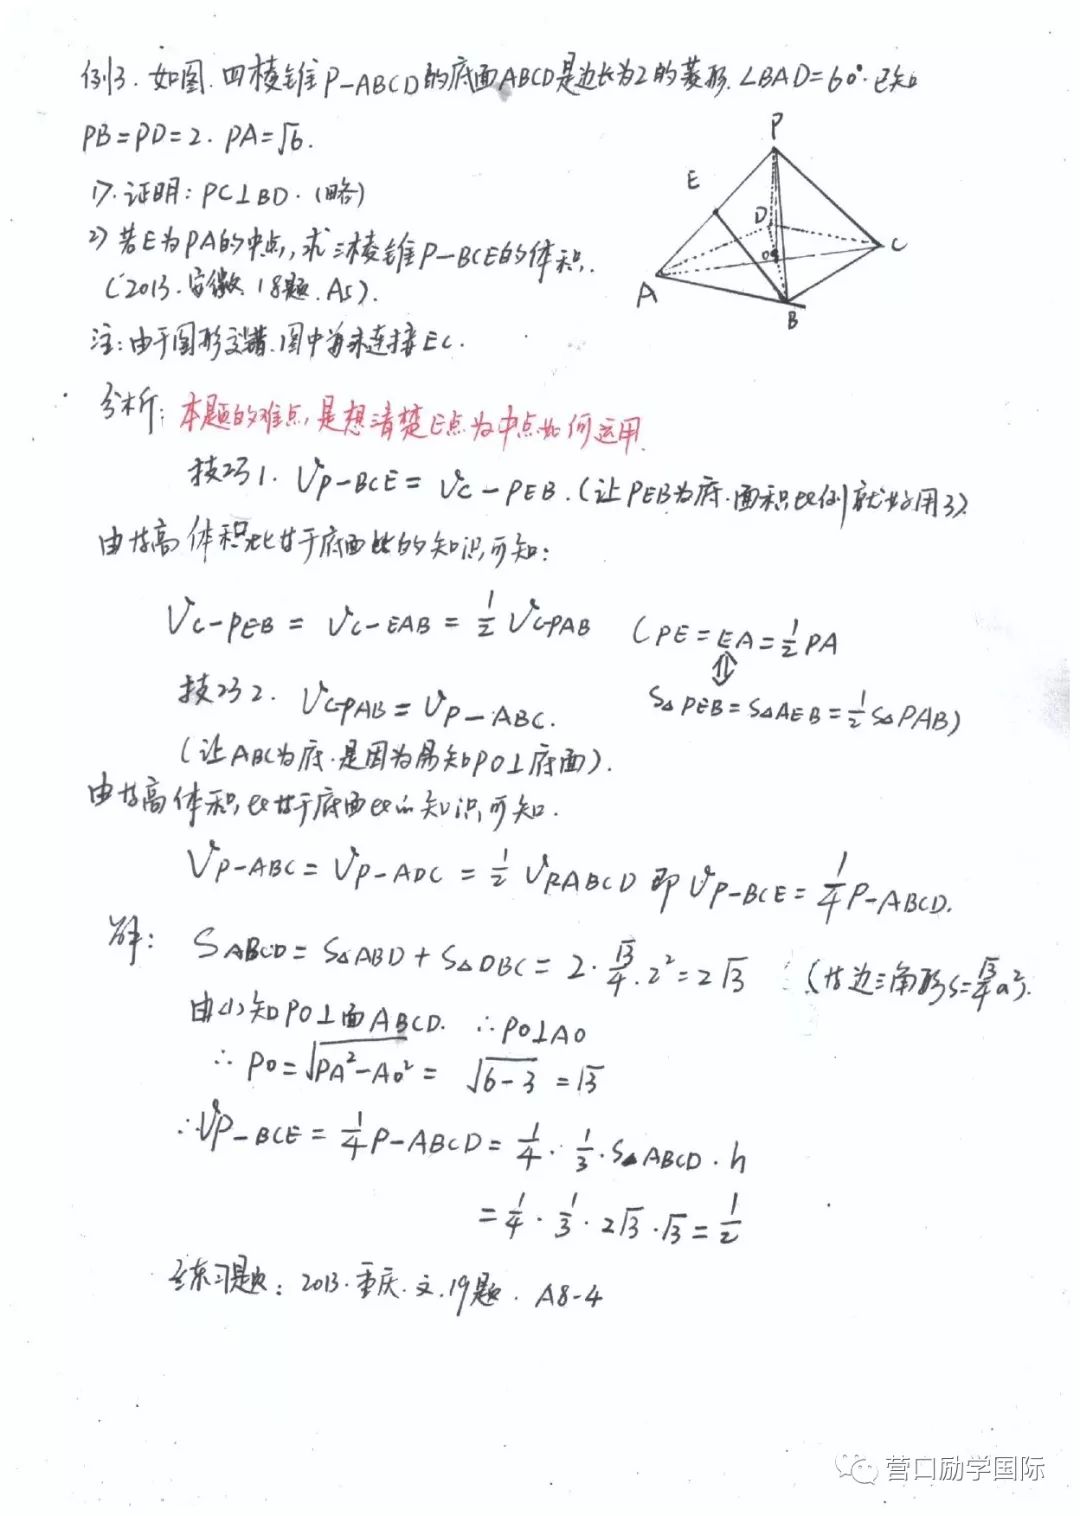 例3. 如图. 四棱锥P-ABCD的底面ABCD是边长为2的菱形. ∠BAD=60°. 已知
PB=PD=2. PA=√6.
1). 证明: PC⊥BD. (略)
2) 若E为PA的中点, 求三棱锥P-BCE的体积.
(2013. 安徽. 18题. A5).
P
E
D
C
O
A
B
注: 由于图形交错. 图中并未连接EC.
分析: 本题的难点, 是想清楚E点为中点如何运用.
技巧1. VP-BCE = VC-PEB. (让PEB为底. 面积比例就好用了).
由等高体积比等于底面比的知识, 可知:
VC-PEB = VC-EAB = 1/2 VC-PAB (PE=EA=1/2PA
⇕
技巧2. VC-PAB = VP-ABC. S△PEB=S△AEB=1/2S△PAB)
(让ABC为底. 是因为易知PO⊥底面).
由等高体积, 比等于底面比的知识, 可知.
VP-ABC = VP-ADC = 1/2 VP-ABCD 即 VP-BCE = 1/4 P-ABCD.
解: SABCD = S△ABD + S△DBC = 2·√3/4·2² = 2√3 (等边三角形S=√3/4a²).
由(1)知PO⊥面ABCD. ∴PO⊥AO
∴ PO=√PA²-AO² = √6-3 = √3
∴VP-BCE = 1/4 P-ABCD = 1/4 · 1/3 · S△ABCD · h
= 1/4 · 1/3 · 2√3 · √3 = 1/2
练习题: 2013. 重庆. 文. 19题. A8-4
营口励学国际